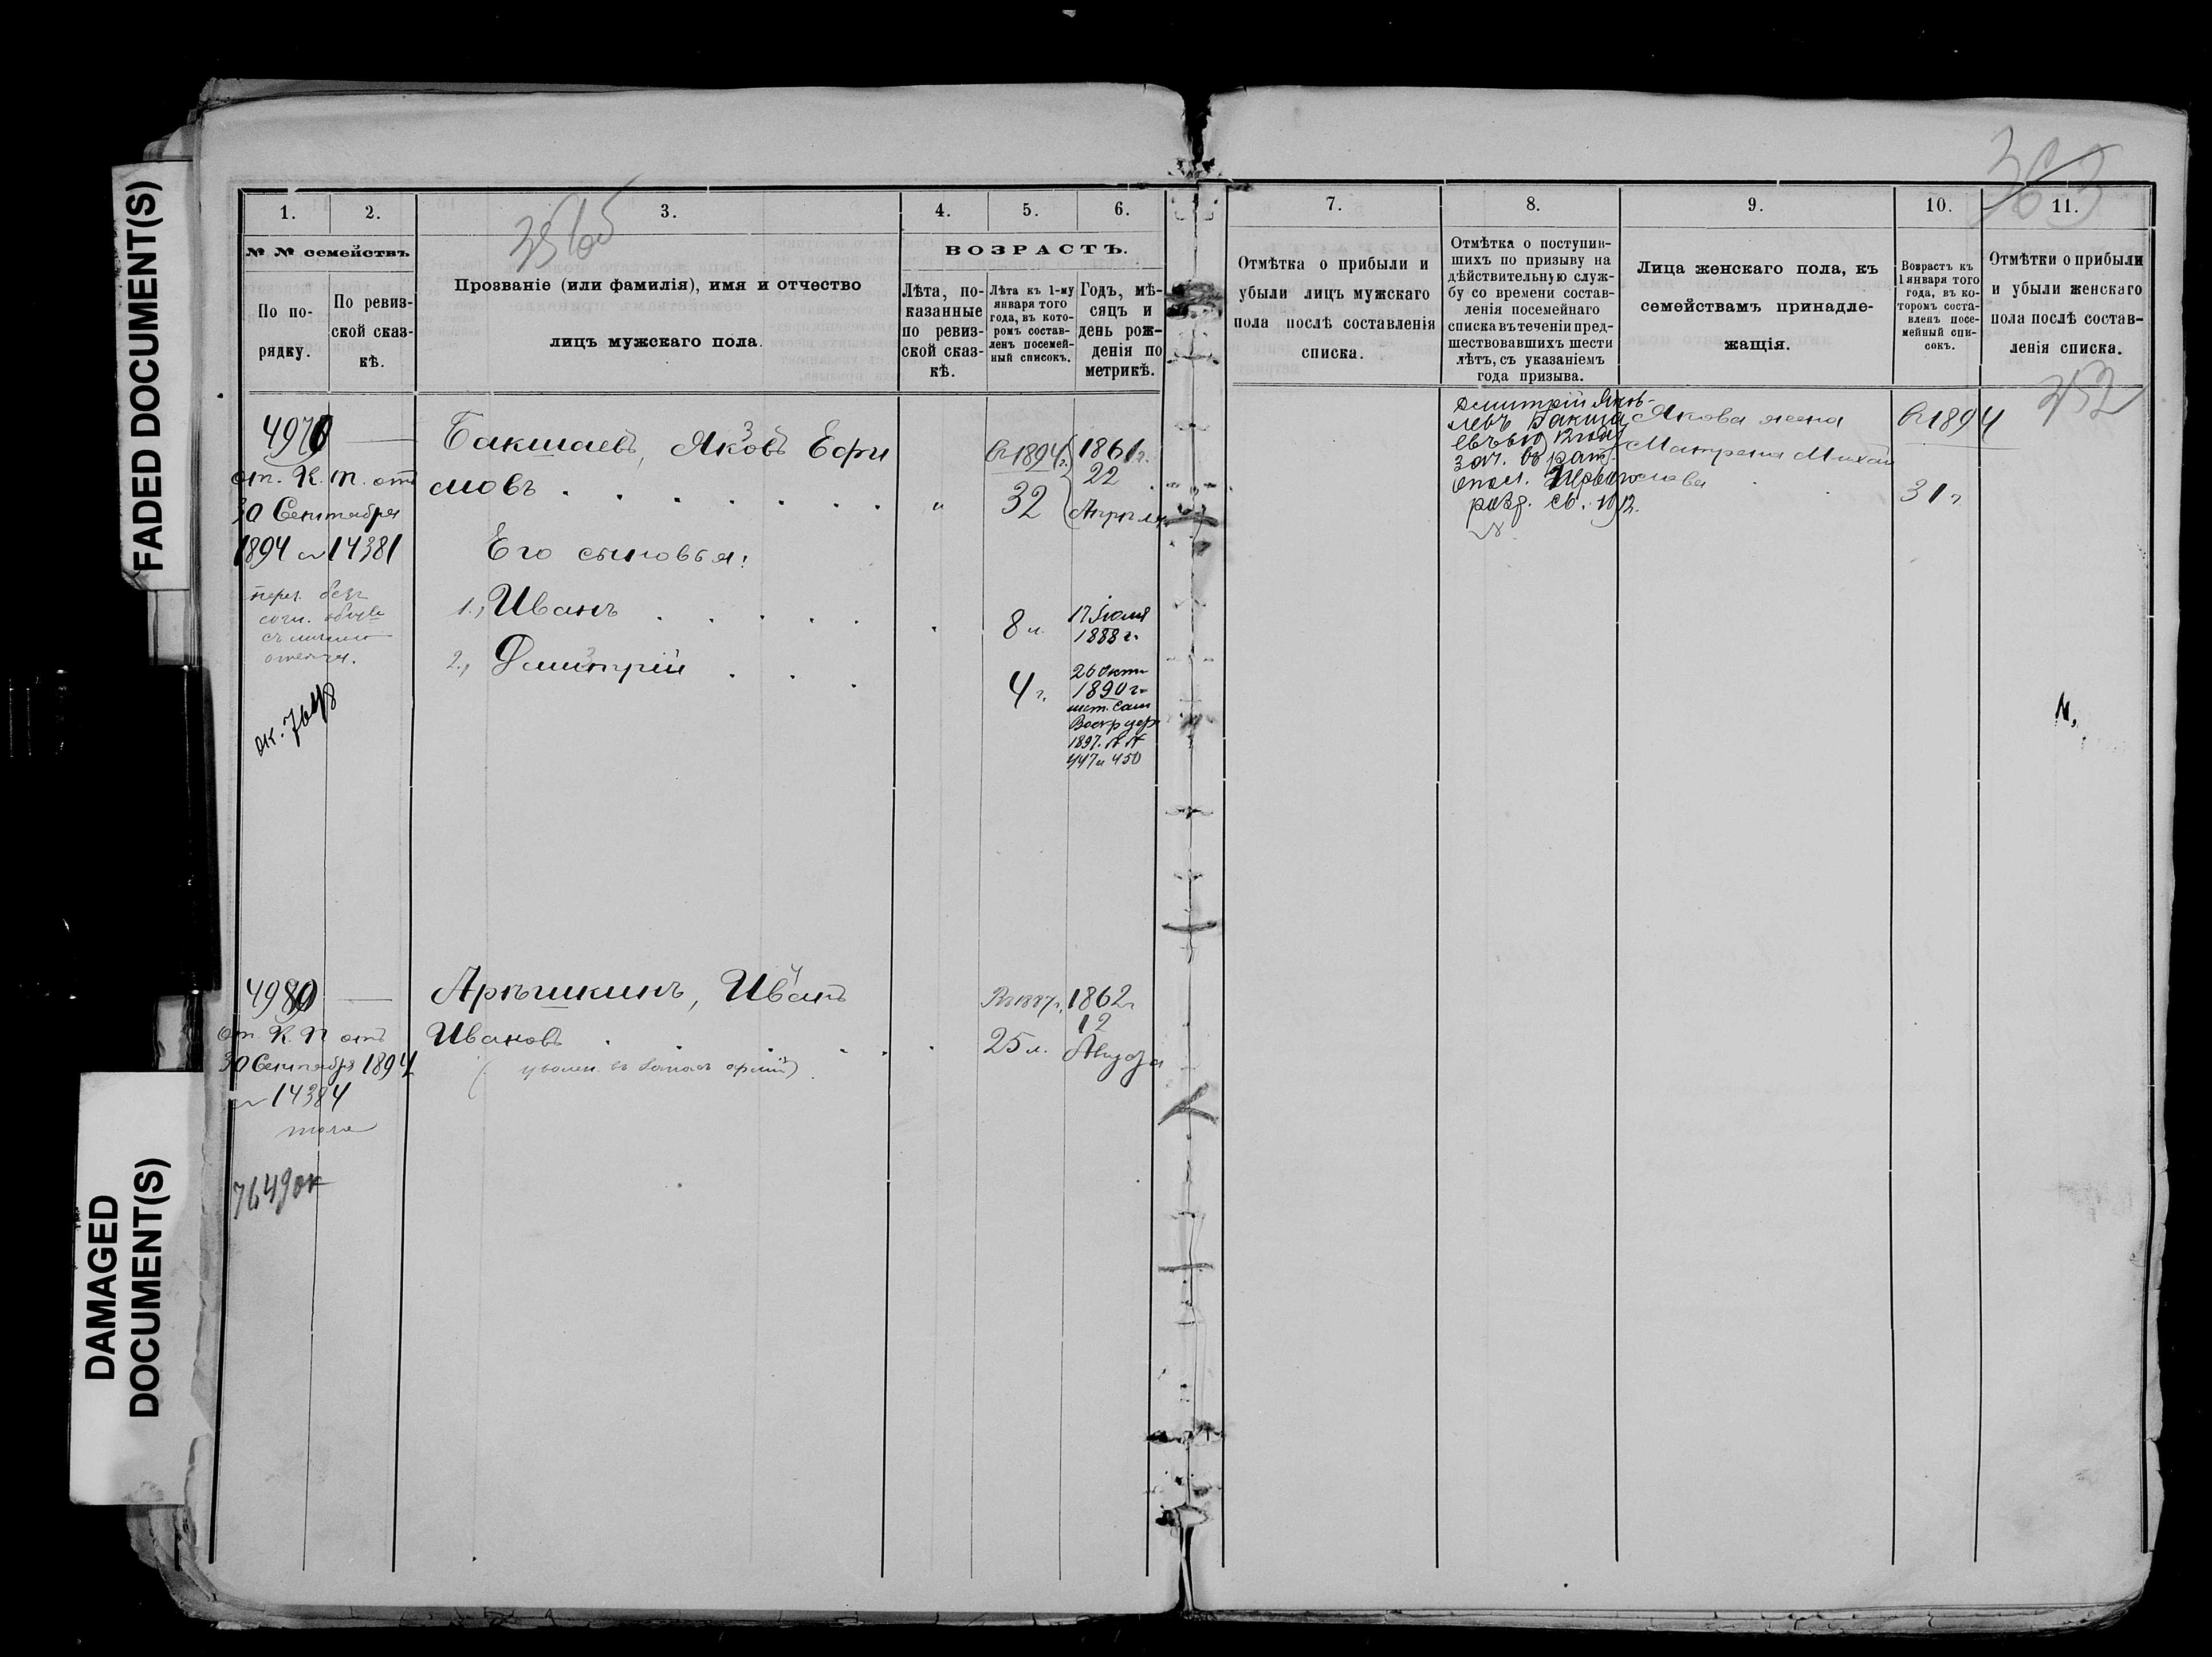 FADED DOCUMENT(S)
DAMAGED
DOCUMENT(S)
363
1.
2.
3.
4.
5.
6.
№ № семействъ
По по-
рядку.
По ревиз-
ской сказ-
кѣ.
Прозваніе (или фамилія), имя и отчество
лицъ мужскаго пола.
ВОЗРАСТЪ.
Лѣта, по-
казанные
по ревиз-
ской сказ-
кѣ.
Лѣта къ 1-му
января того
года, въ кото-
ромъ состав-
ленъ посемей-
ный списокъ.
Годъ, мѣ-
сяцъ и
день рож-
денія по
метрикѣ.
от. К. П. отъ
30 Сентября
1894 № 14381
ок. 7648
Бакшаевъ, Яковъ Ефи
мовъ
Его сыновья:
1., Иванъ
2., Дмитрій
въ 1894 г.
32
8 л.
4 г.
1861 г.
22
Апрѣля
17 Іюля
1888 г.
26 Окт
1890 г.
1897. № №
447 и 450
от К. П отъ
30 Сентября 1894
№ 14384
7649 ок
Арѣшкинъ, Иванъ
Ивановъ
(уволен. въ запасъ арміи)
Въ 1887 г.
25 л.
1862 г
12
Августа
7.
8.
9.
10.
11.
Отмѣтка о прибыли и
убыли лицъ мужскаго
пола послѣ составленія
списка.
Отмѣтка о поступив-
шихъ по призыву на
дѣйствительную служ-
бу со времени состав-
ленія посемейнаго
списка въ теченіи пред-
шествовавшихъ шести
лѣтъ, съ указаніемъ
года призыва.
Лица женскаго пола, къ
семействамъ принадле-
жащія.
Возрастъ къ
1 января того
года, въ ко-
торомъ соста-
вленъ посе-
мейный спи-
сокъ.
Отмѣтки о прибыли
и убыли женскаго
пола послѣ состав-
ленія списка.
252
Дмитрій Яков-
левъ Бакша
евъ въ 1912 году
зач. въ рат.
опол. Перваго
разр. св. 1912.
Якова жена
Матрена Михай
лова
въ 1894
31 г.